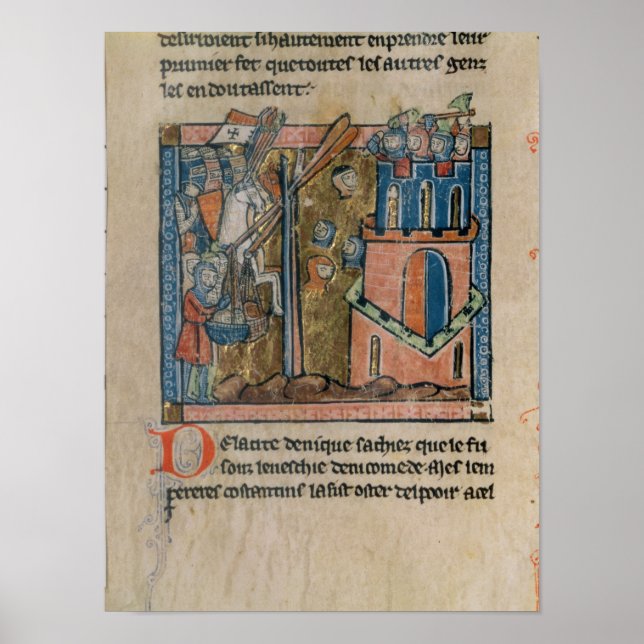 desirroient si hautement enprendre leur
prumier fet que toutes les autres genz
les en doutassent:
De la cite de nique sachiez que le fu
soiz leueschie de nicomede. Mes lem
pereres costantins la fist oster del pooir a cel